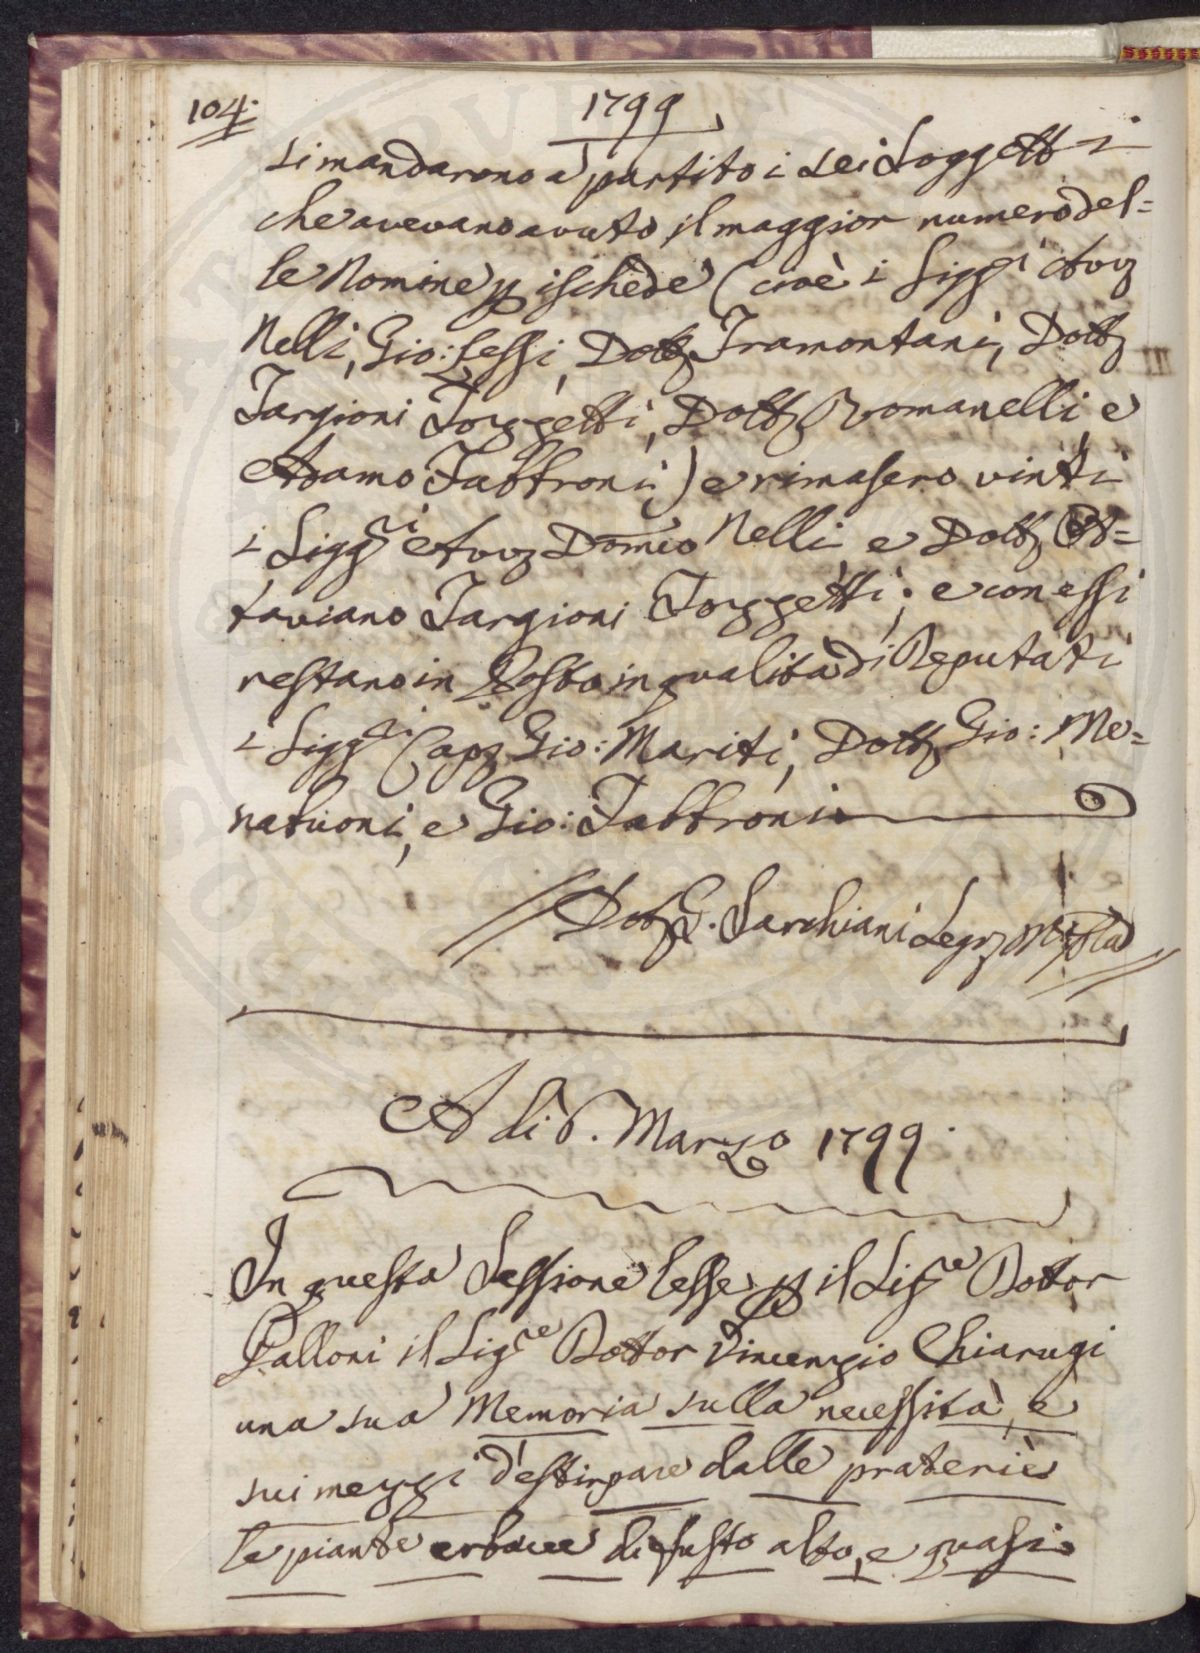 104.
1799
si mandarono a partito i sei Soggetti
che avevano avuto il maggior numero del=
le Nomine p ischede (cioè i Sigg.ri Avv.
Nelli, Gio: Lessi, Dott. Tramontani, Dott.
Targioni Tozzetti, Dott. Romanelli, e
Adamo Fabbroni,) e rimasero vinti
i Sigg.ri Avv. Dom.co Nelli e Dott. Ot=
taviano Targioni Tozzetti; e con essi
restano in Posto in qualità di Deputati
i Sigg.ri Cap. Gio: Mariti, Dott. Gio: Me=
natuoni, e Gio: Fabbroni
Dott. G. Sarchiani Segr.
A di 6. Marzo 1799.
In questa Sessione lesse p il Sig.re Dottor
Palloni il Sig.re Dottor Vincenzio Chiarugi
una sua Memoria sulla necessità, e
sui mezzi d'estirpare dalle praterie
le piante erbacee di fusto alto, e quasi